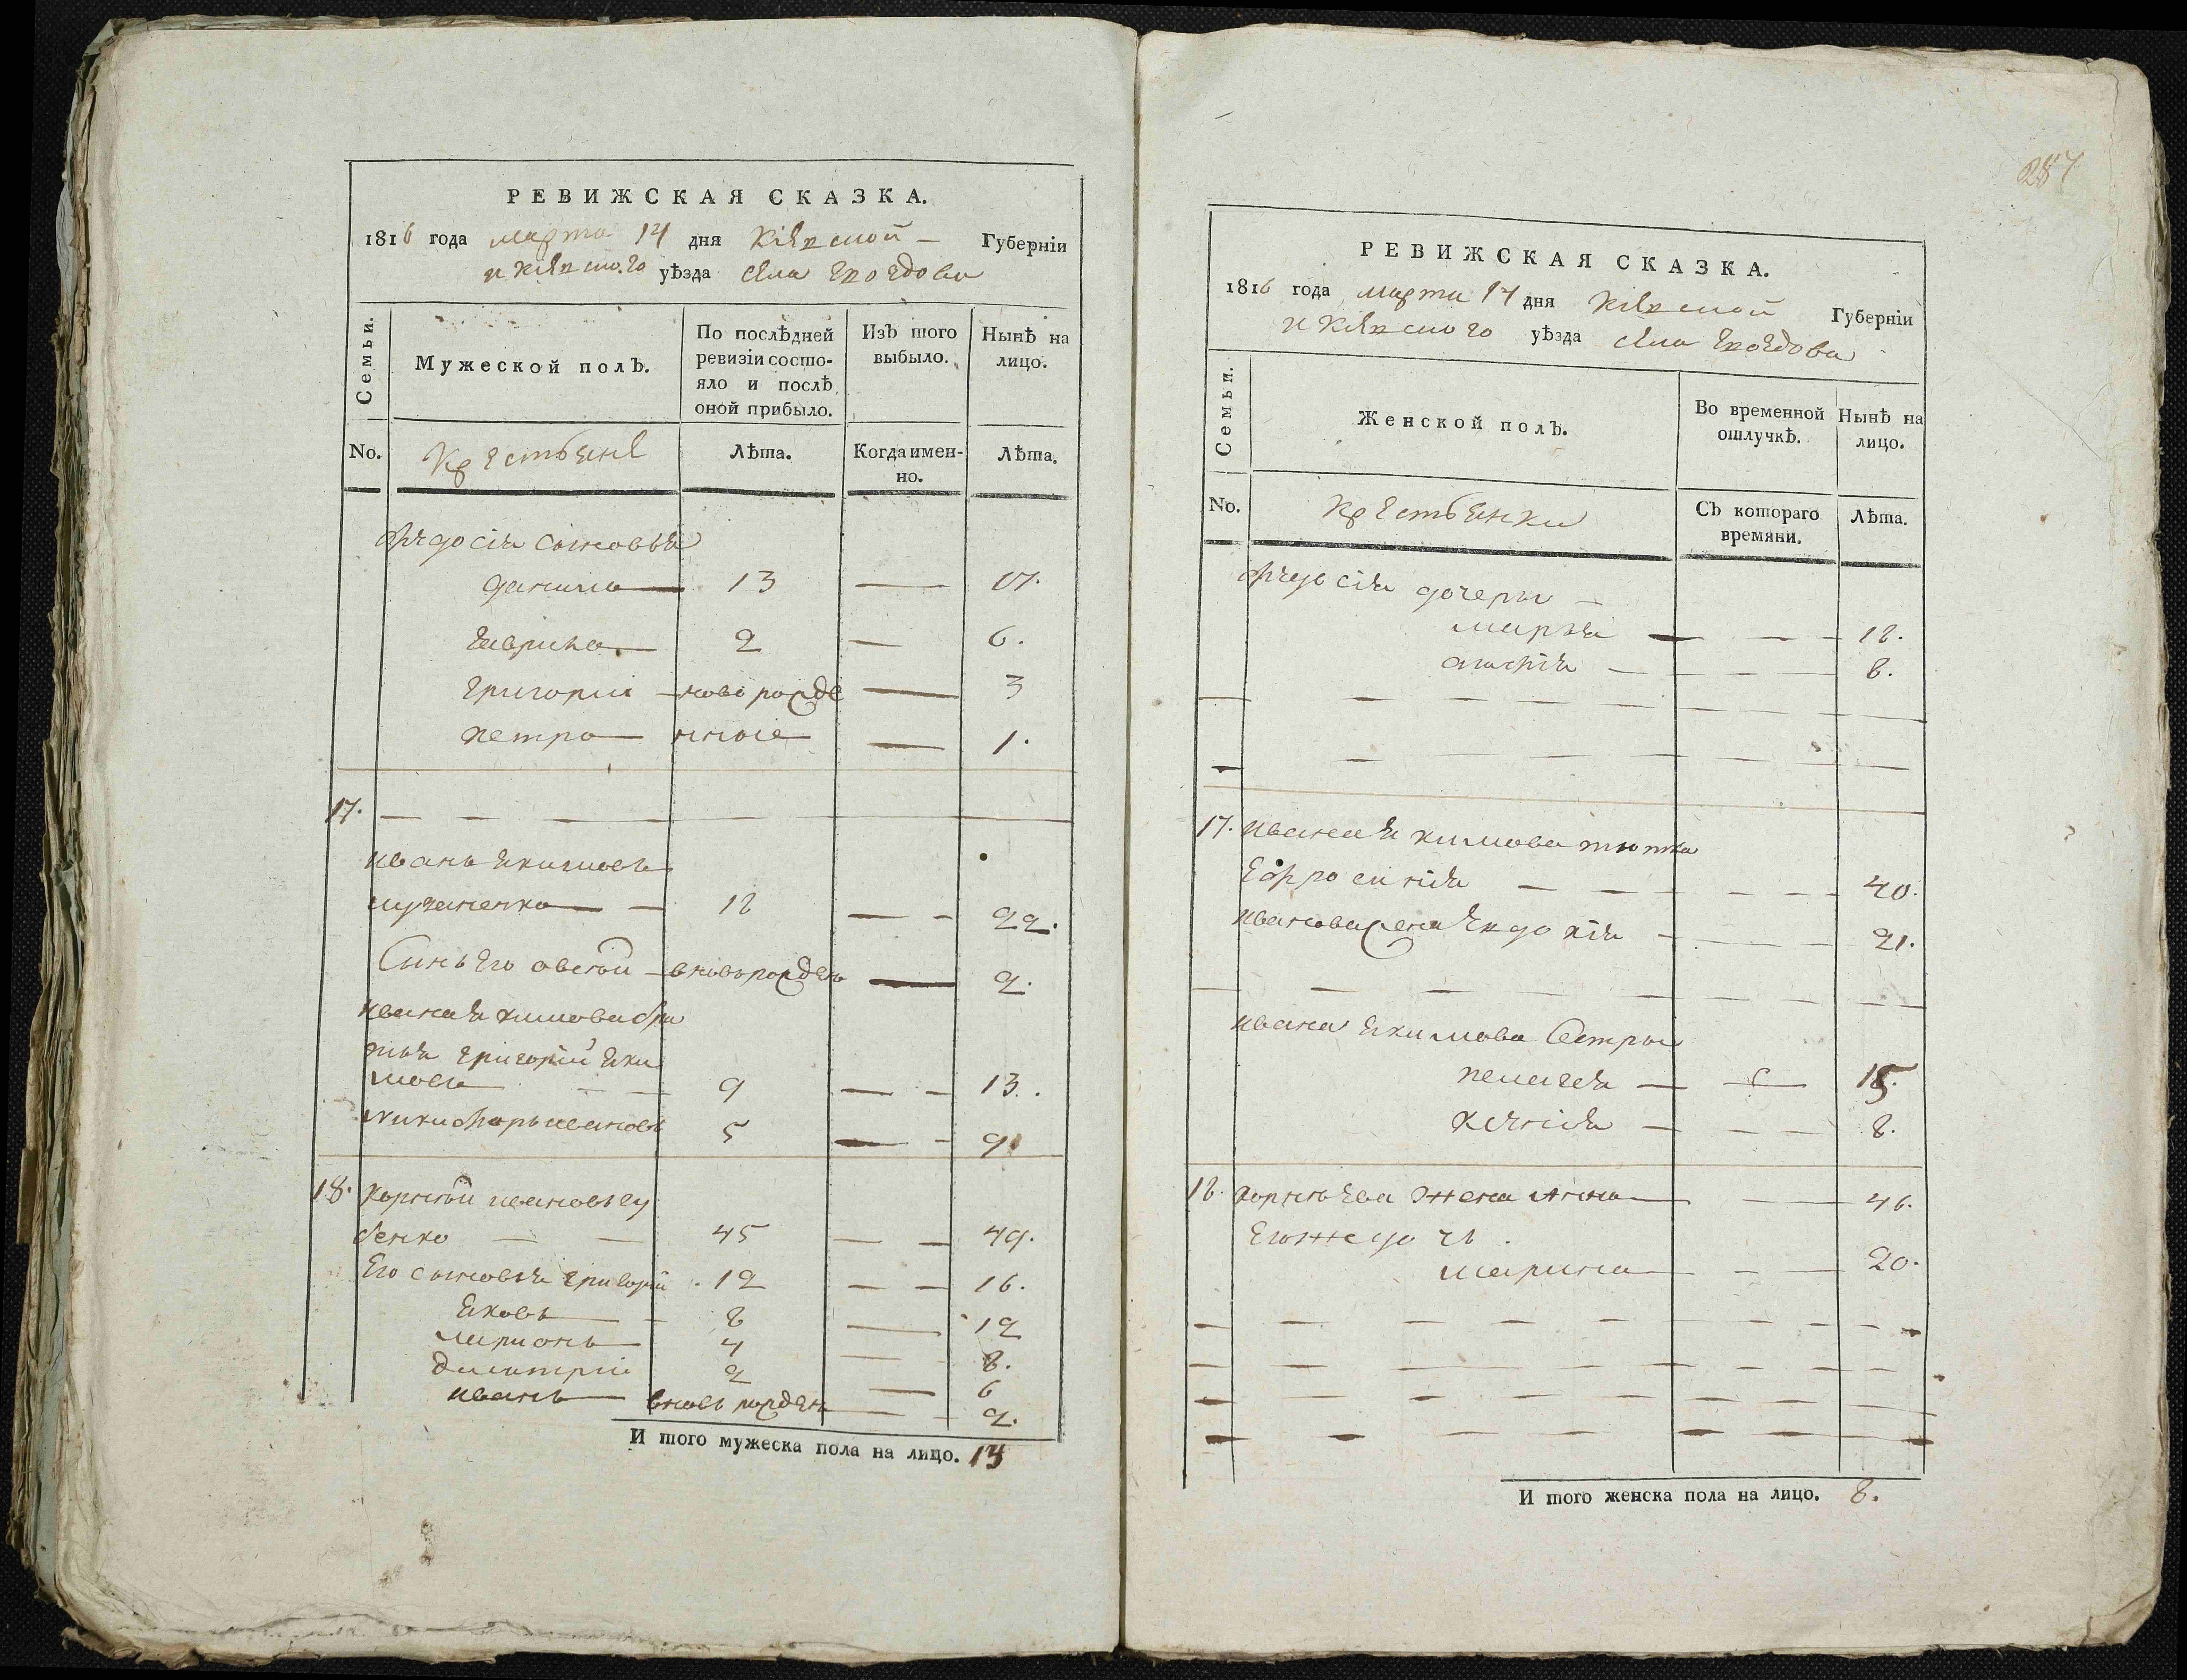 РЕВИЖСКАЯ СКАЗКА.
1816 года марта 14 дня Кіевской Губерніи
и Кіевского уѣзда села Гвоздова
Семьи.
Мужеской полъ.
По послѣдней ревизіи состо-
яло и послѣ
оной прибыло.
Изъ того
выбыло.
Нынѣ на
лицо.
No.
Крестьяне
Лѣта.
Когда имен-
но.
Лѣта.
Федосія сыновья
данило 13 17.
гаврило 2 6.
григорій новорожде 3
петро нные 1.
17.
иванъ якимовъ
18 22.
Сынъ его вновьрожденъ 2.
ивана якимова бра
тья григорій яки
мовъ 9 13.
никифоръ ивановъ 5 9
18. корній ивановъ
бенко 45 49.
Его сыновья григорій 12 16.
яковъ 8 12
ларионъ 4 8.
димитрій 2 6
иванъ вновь рожденъ 2.
И того мужеска пола на лицо. 14
287
РЕВИЖСКАЯ СКАЗКА.
1816 года марта 14 дня Кіевской Губерніи
и Кіевского уѣзда села Гвоздова
Семьи.
Женской полъ.
Во временной
отлучкѣ.
Нынѣ на
лицо.
No.
Крестьянки
Съ котораго
времяни.
Лѣта.
Федосія дочери
марья 12.
8.
17. ивана якимова тютка
Ефросинія 40.
иванова жена Евдокія 21.
ивана якимова Сестры
пелагея 15.
ксенія 8.
18. корніева жена Анна 46.
Егожъ дочь
марина 20.
И того женска пола на лицо. 8.